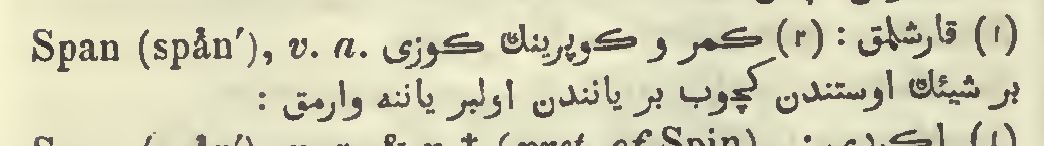 Span (spån′), v. a. (۱) قارشلمق : (۲) كمر و كوپرينك كوزى
بر شيئك اوستندن كچوب بر ياننده‌ن اولبر ياننه وارمق :